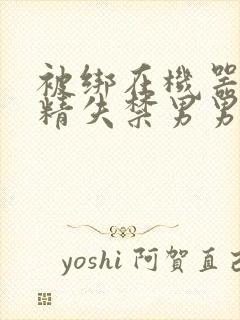 被绑在機器
精失禁男男
yoshi 阿賀直己